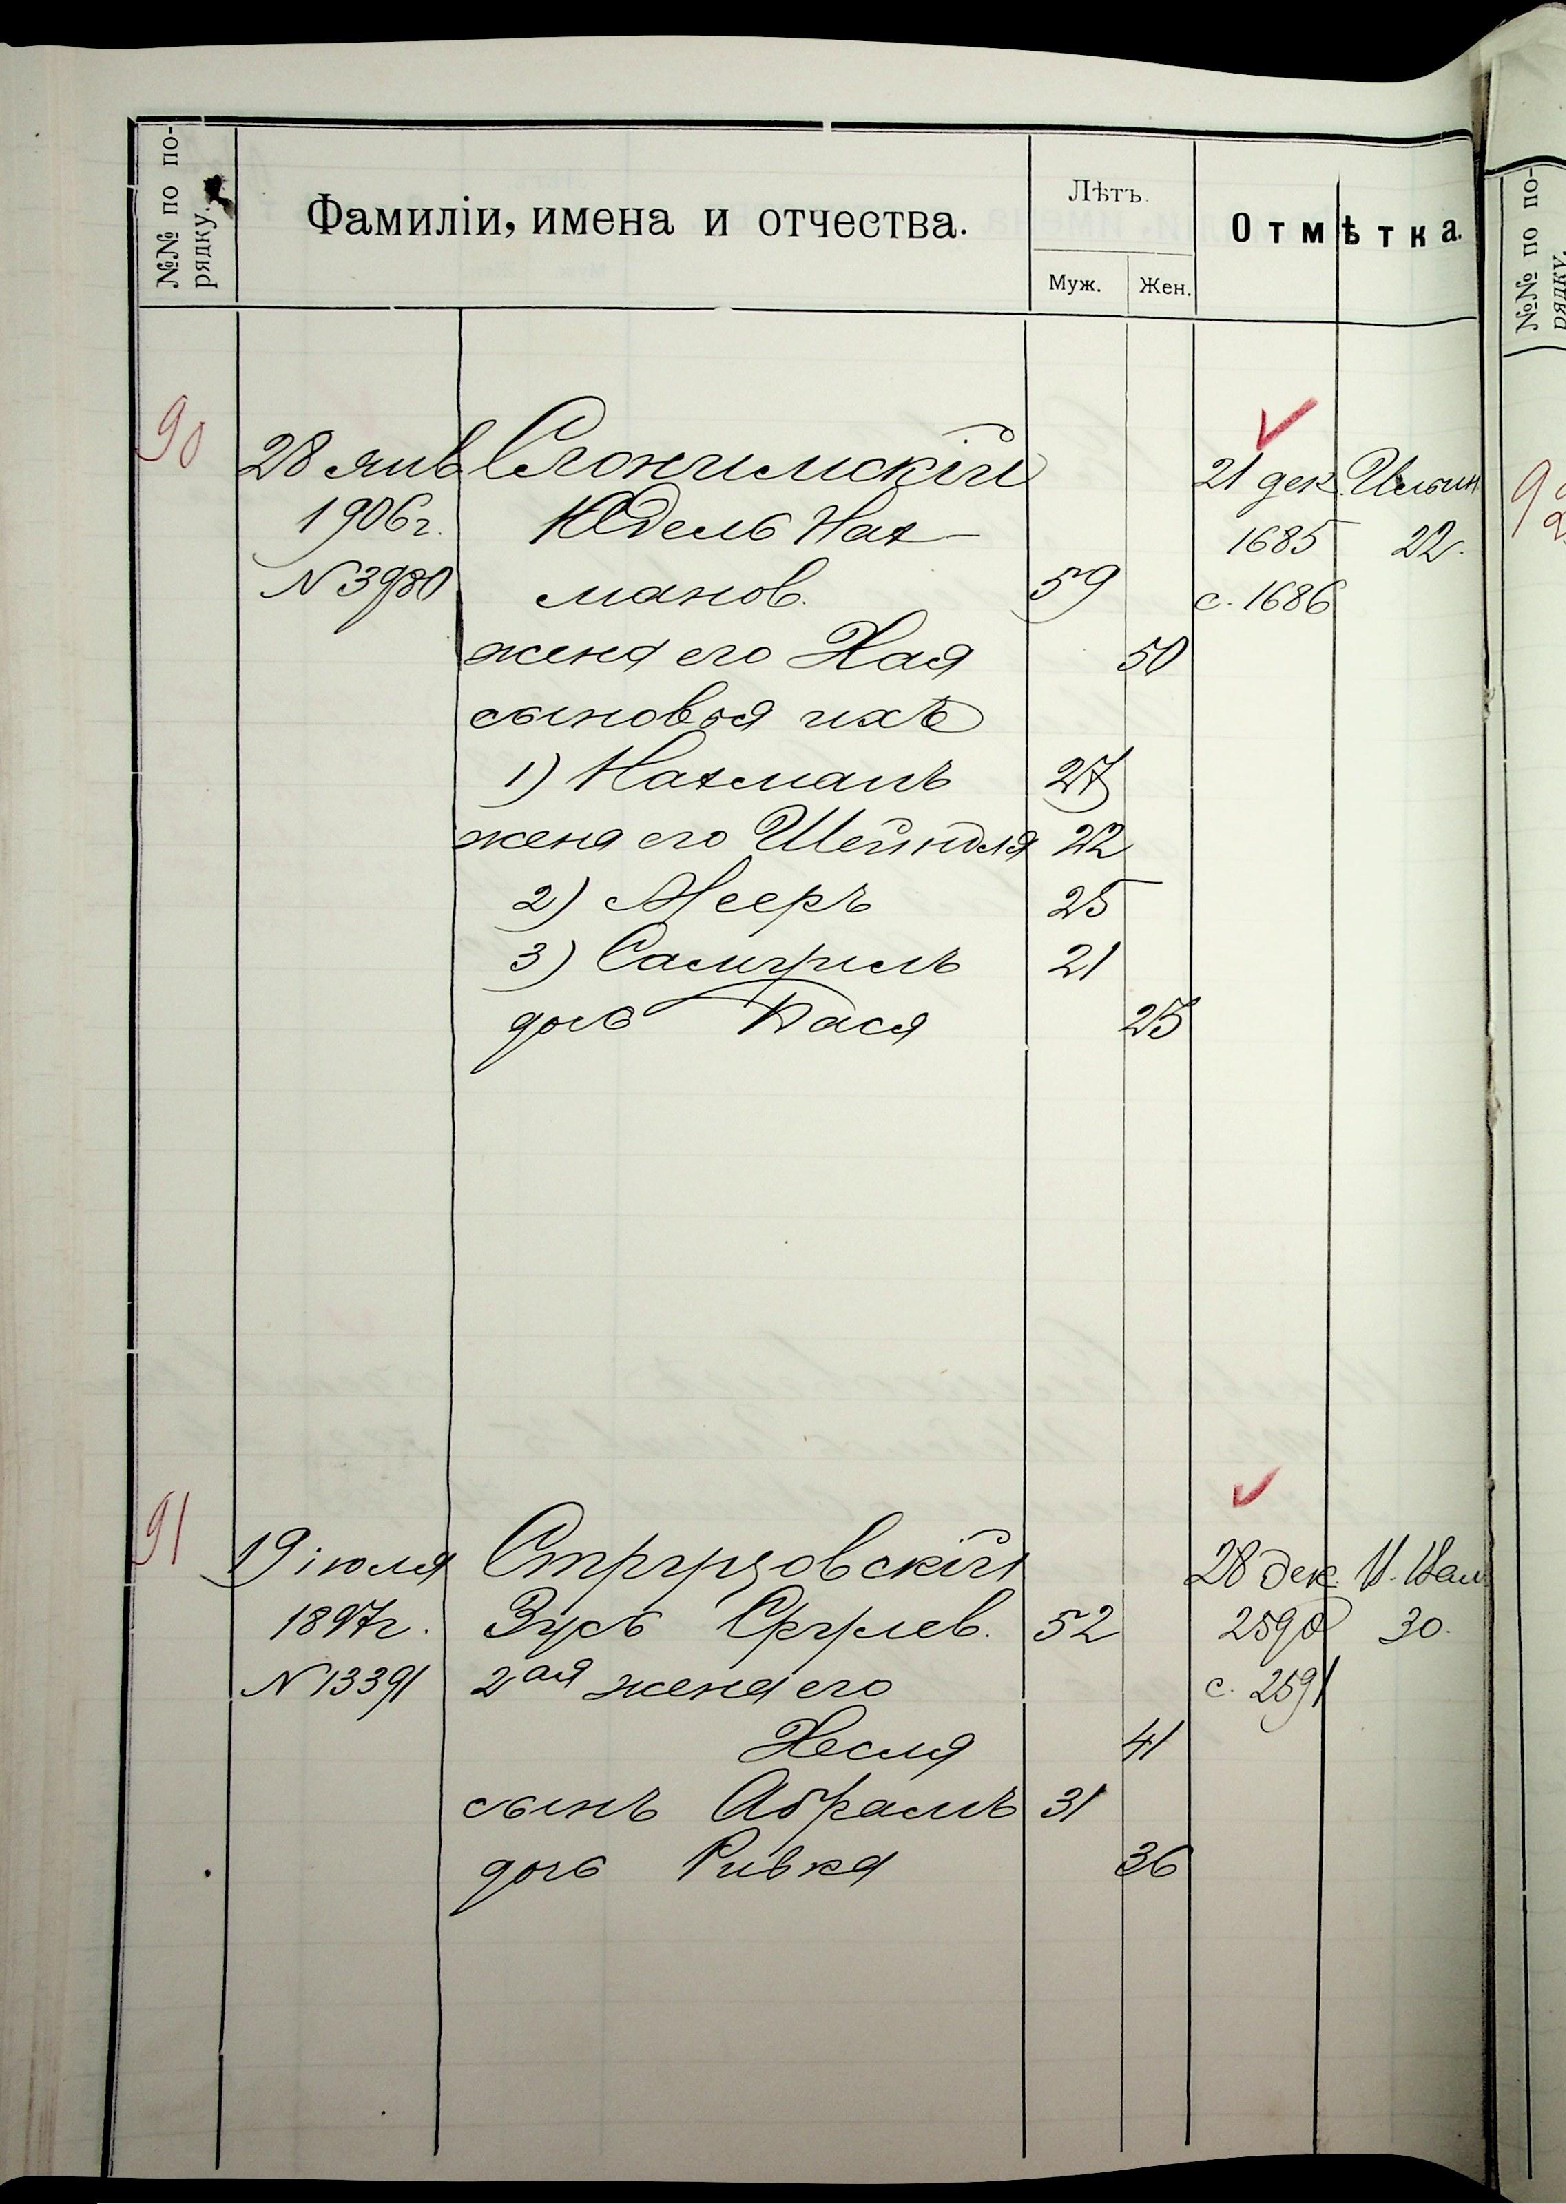 №№ по по-
рядку.
Фамиліи, имена и отчества.
Лѣтъ.
Муж.
Жен.
Отмѣтка.
90
28 янв Слонимскій 21 дек. Ильин
1906г. Юдель Нах- 1685 22.
N 3980 манов. 59 с. 1686
жена его Хая 50
сыновья ихъ
1) Нахманъ 27
жена его Шейндля 22
2) Мееръ 25
3) Самуилъ 21
дочь Бася 25
91
19 іюля Стрызовскій 28 дек.
1897г. Зусь Срулев. 52 2590 30.
N 13391 2ая жена его с. 2591
Хесля 41
сынъ Абрамъ 31
дочь Ривка 36
№№ по по-
рядку.